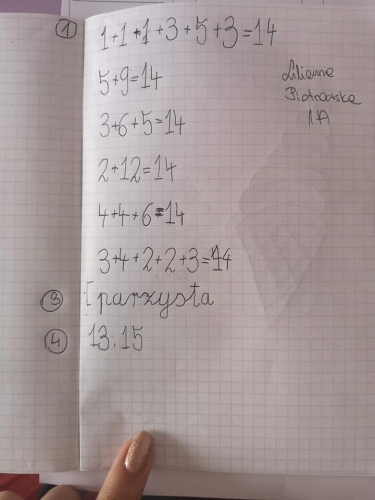 ① 1+1+1+3+5+3=14
5+9=14
3+6+5=14
2+12=14
4+4+6=14
3+4+2+2+3=14
③ parzysta
④ 13:15
Lilianna
Piotrowska
1A